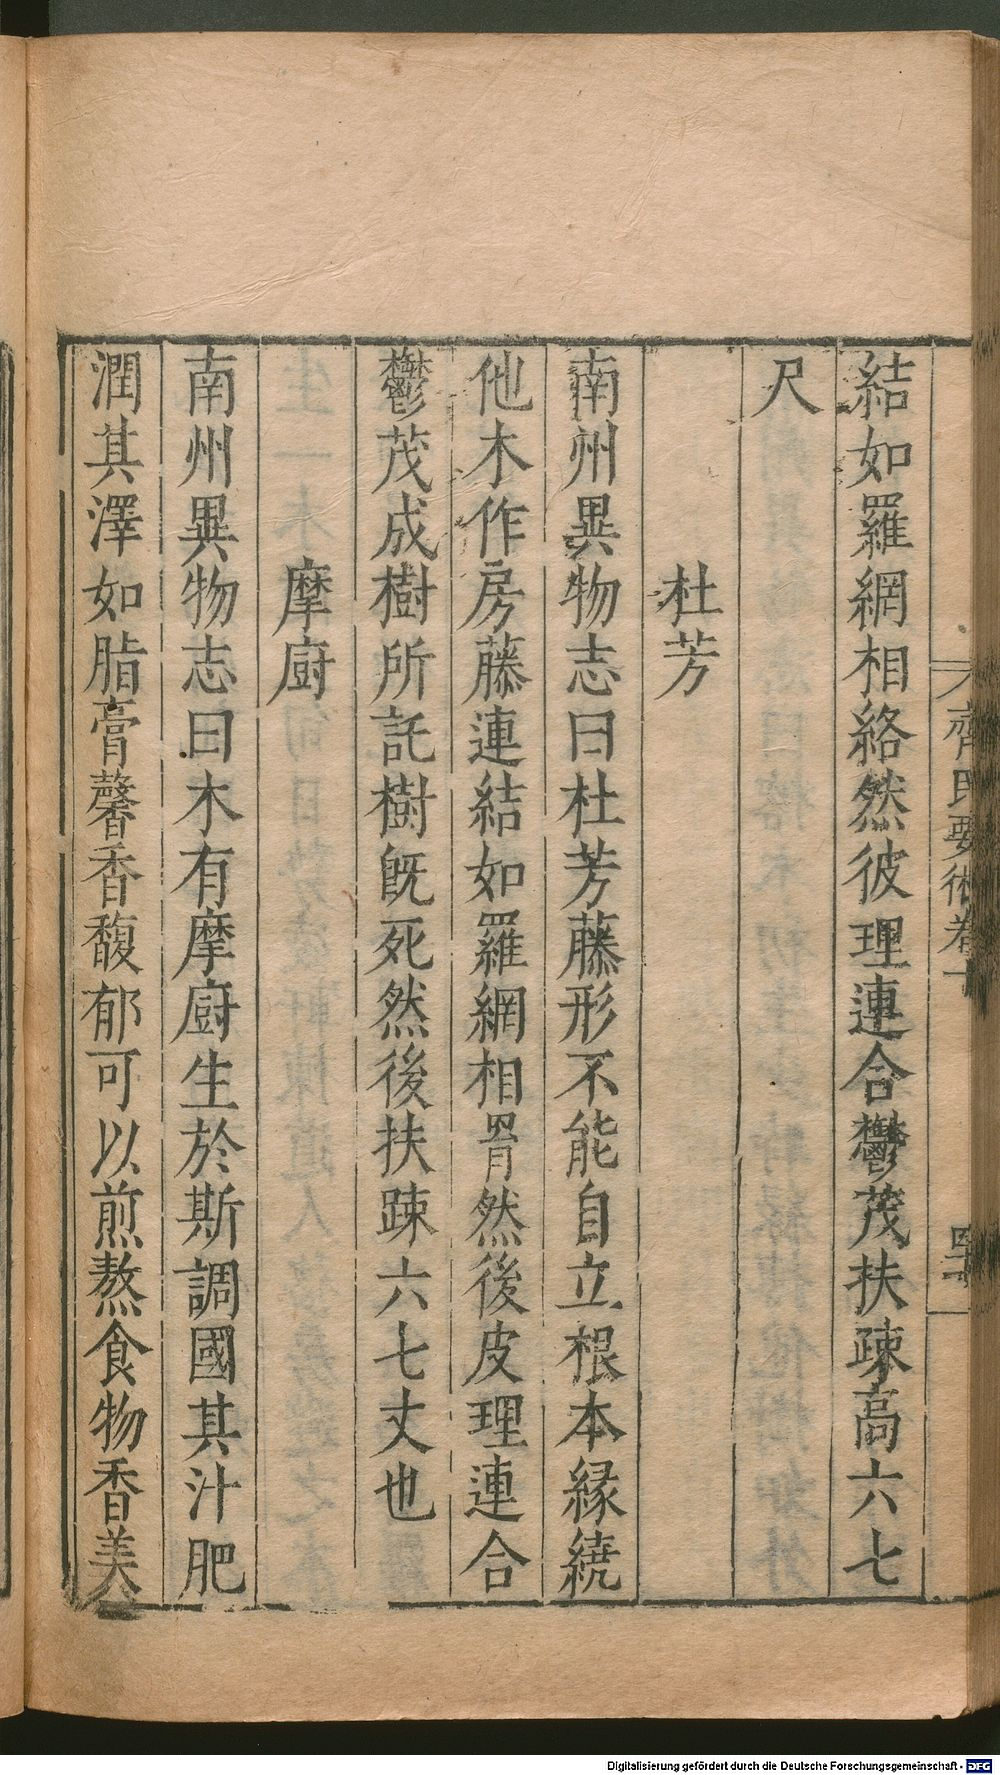 齊民要術卷十
結如羅網相絡然彼理連合鬱茂扶疎高六七
尺
杜芳
南州異物志曰杜芳藤形不能自立根本緣繞
他木作房藤連結如羅網相罥然後皮理連合
鬱茂成樹所託樹旣死然後扶踈六七丈也
摩廚
南州異物志曰木有摩廚生於斯調國其汁肥
潤其澤如脂膏馨香馥郁可以煎熬食物香美
Digitalisierung gefördert durch die Deutsche Forschungsgemeinschaft - DFG